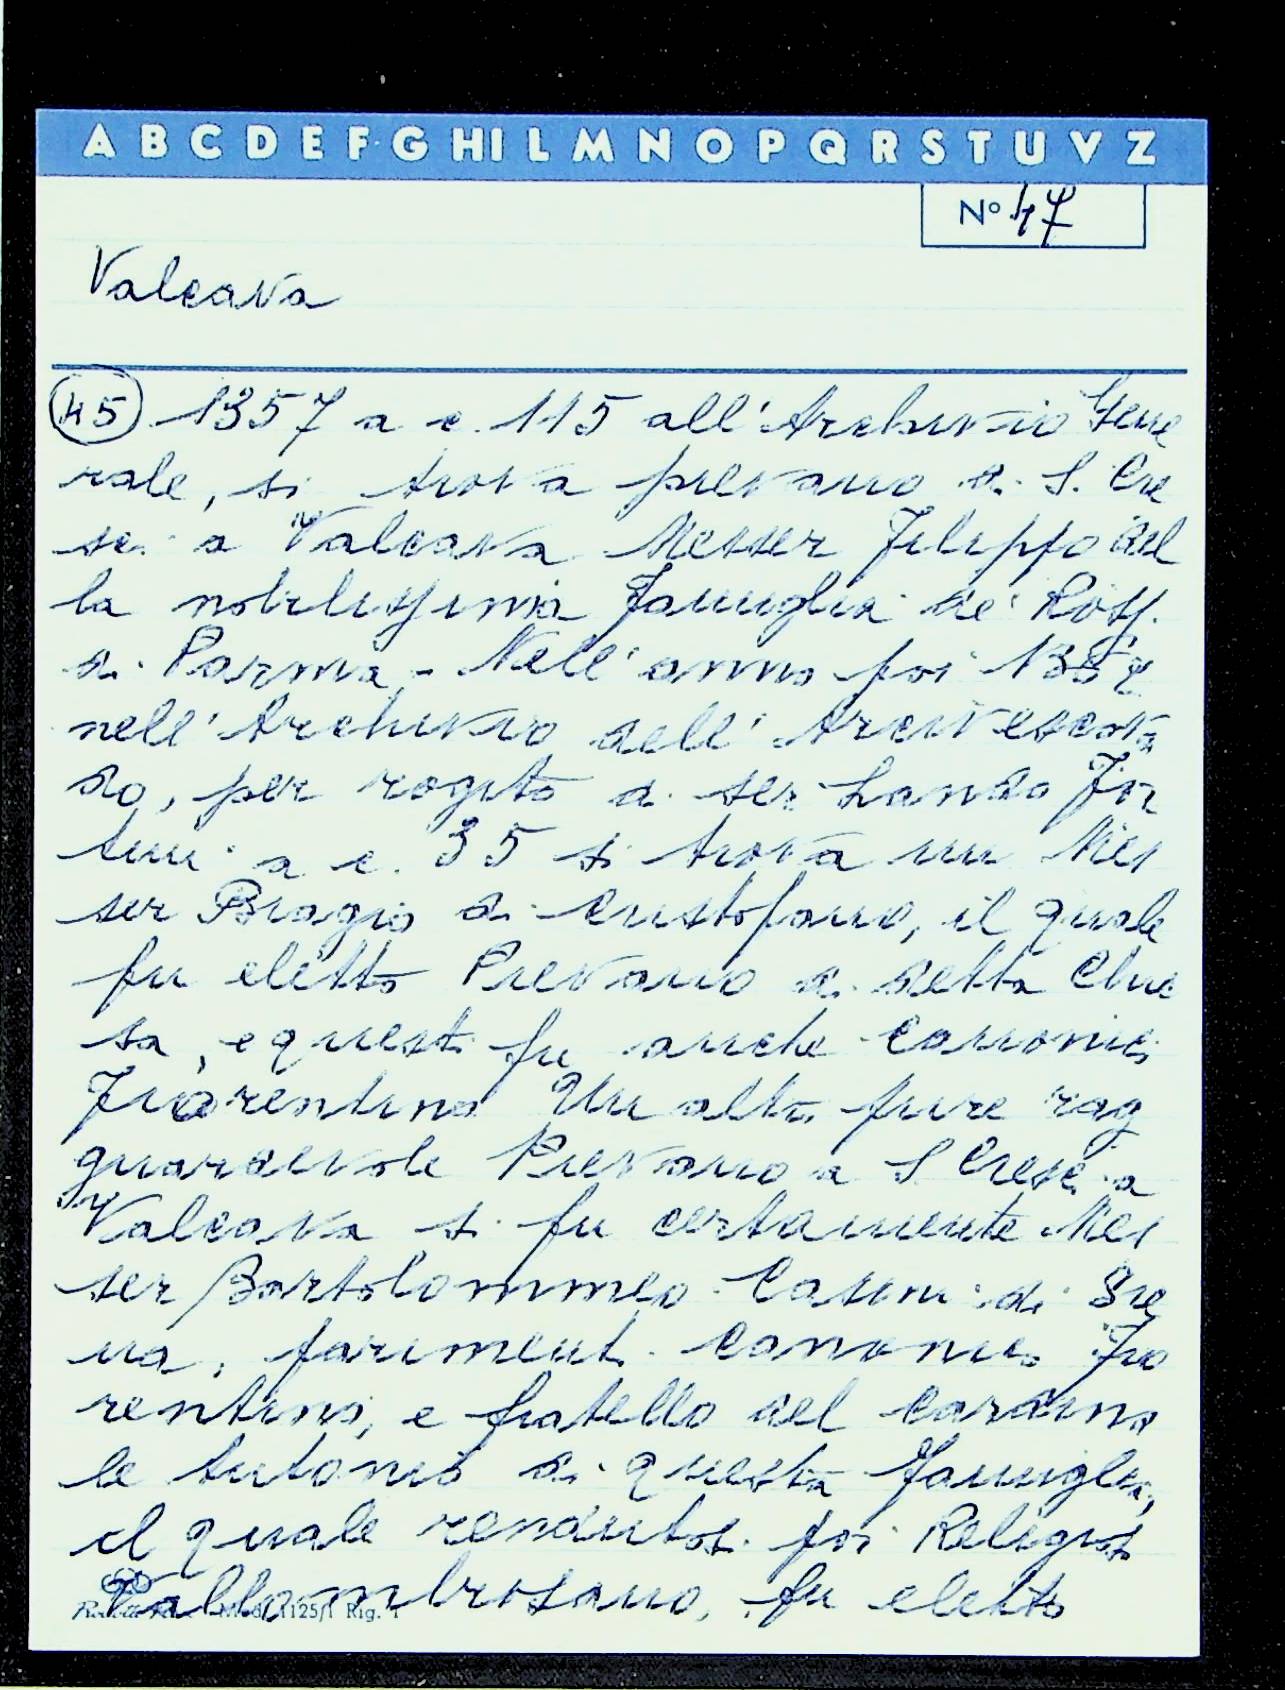 A B C D E F G H I L M N O P Q R S T U V Z
Nº 47
Valcava
45 1357 a c. 115 all'Archivio Gene
rale, si trova pievano di S. Cre
sci a Valcava Messer Filippo del
la nobilissima famiglia de' Rossi
di Parma - Nell'anno poi 1382
nell'Archivio dell'Arcivescova
do, per rogito di ser Lando For
tini a c. 35 si trova un Mes
ser Biagio di Cristofano, il quale
fu eletto Pievano di detta Chie
sa, e questi fu anche Canonico
Fiorentino Un altro pure rag
guardevole Pievano a S Cresci a
Valcava si fu certamente Mes
ser Bartolommeo Casini di Sie
na, pariment. Canonico Fio
rentino, e fratello del Cardina
le Antonio di questa famiglia,
il quale rendutosi poi Religioso
Vallombrosano, fu eletto
Mod. 1125/1 Rig. 1